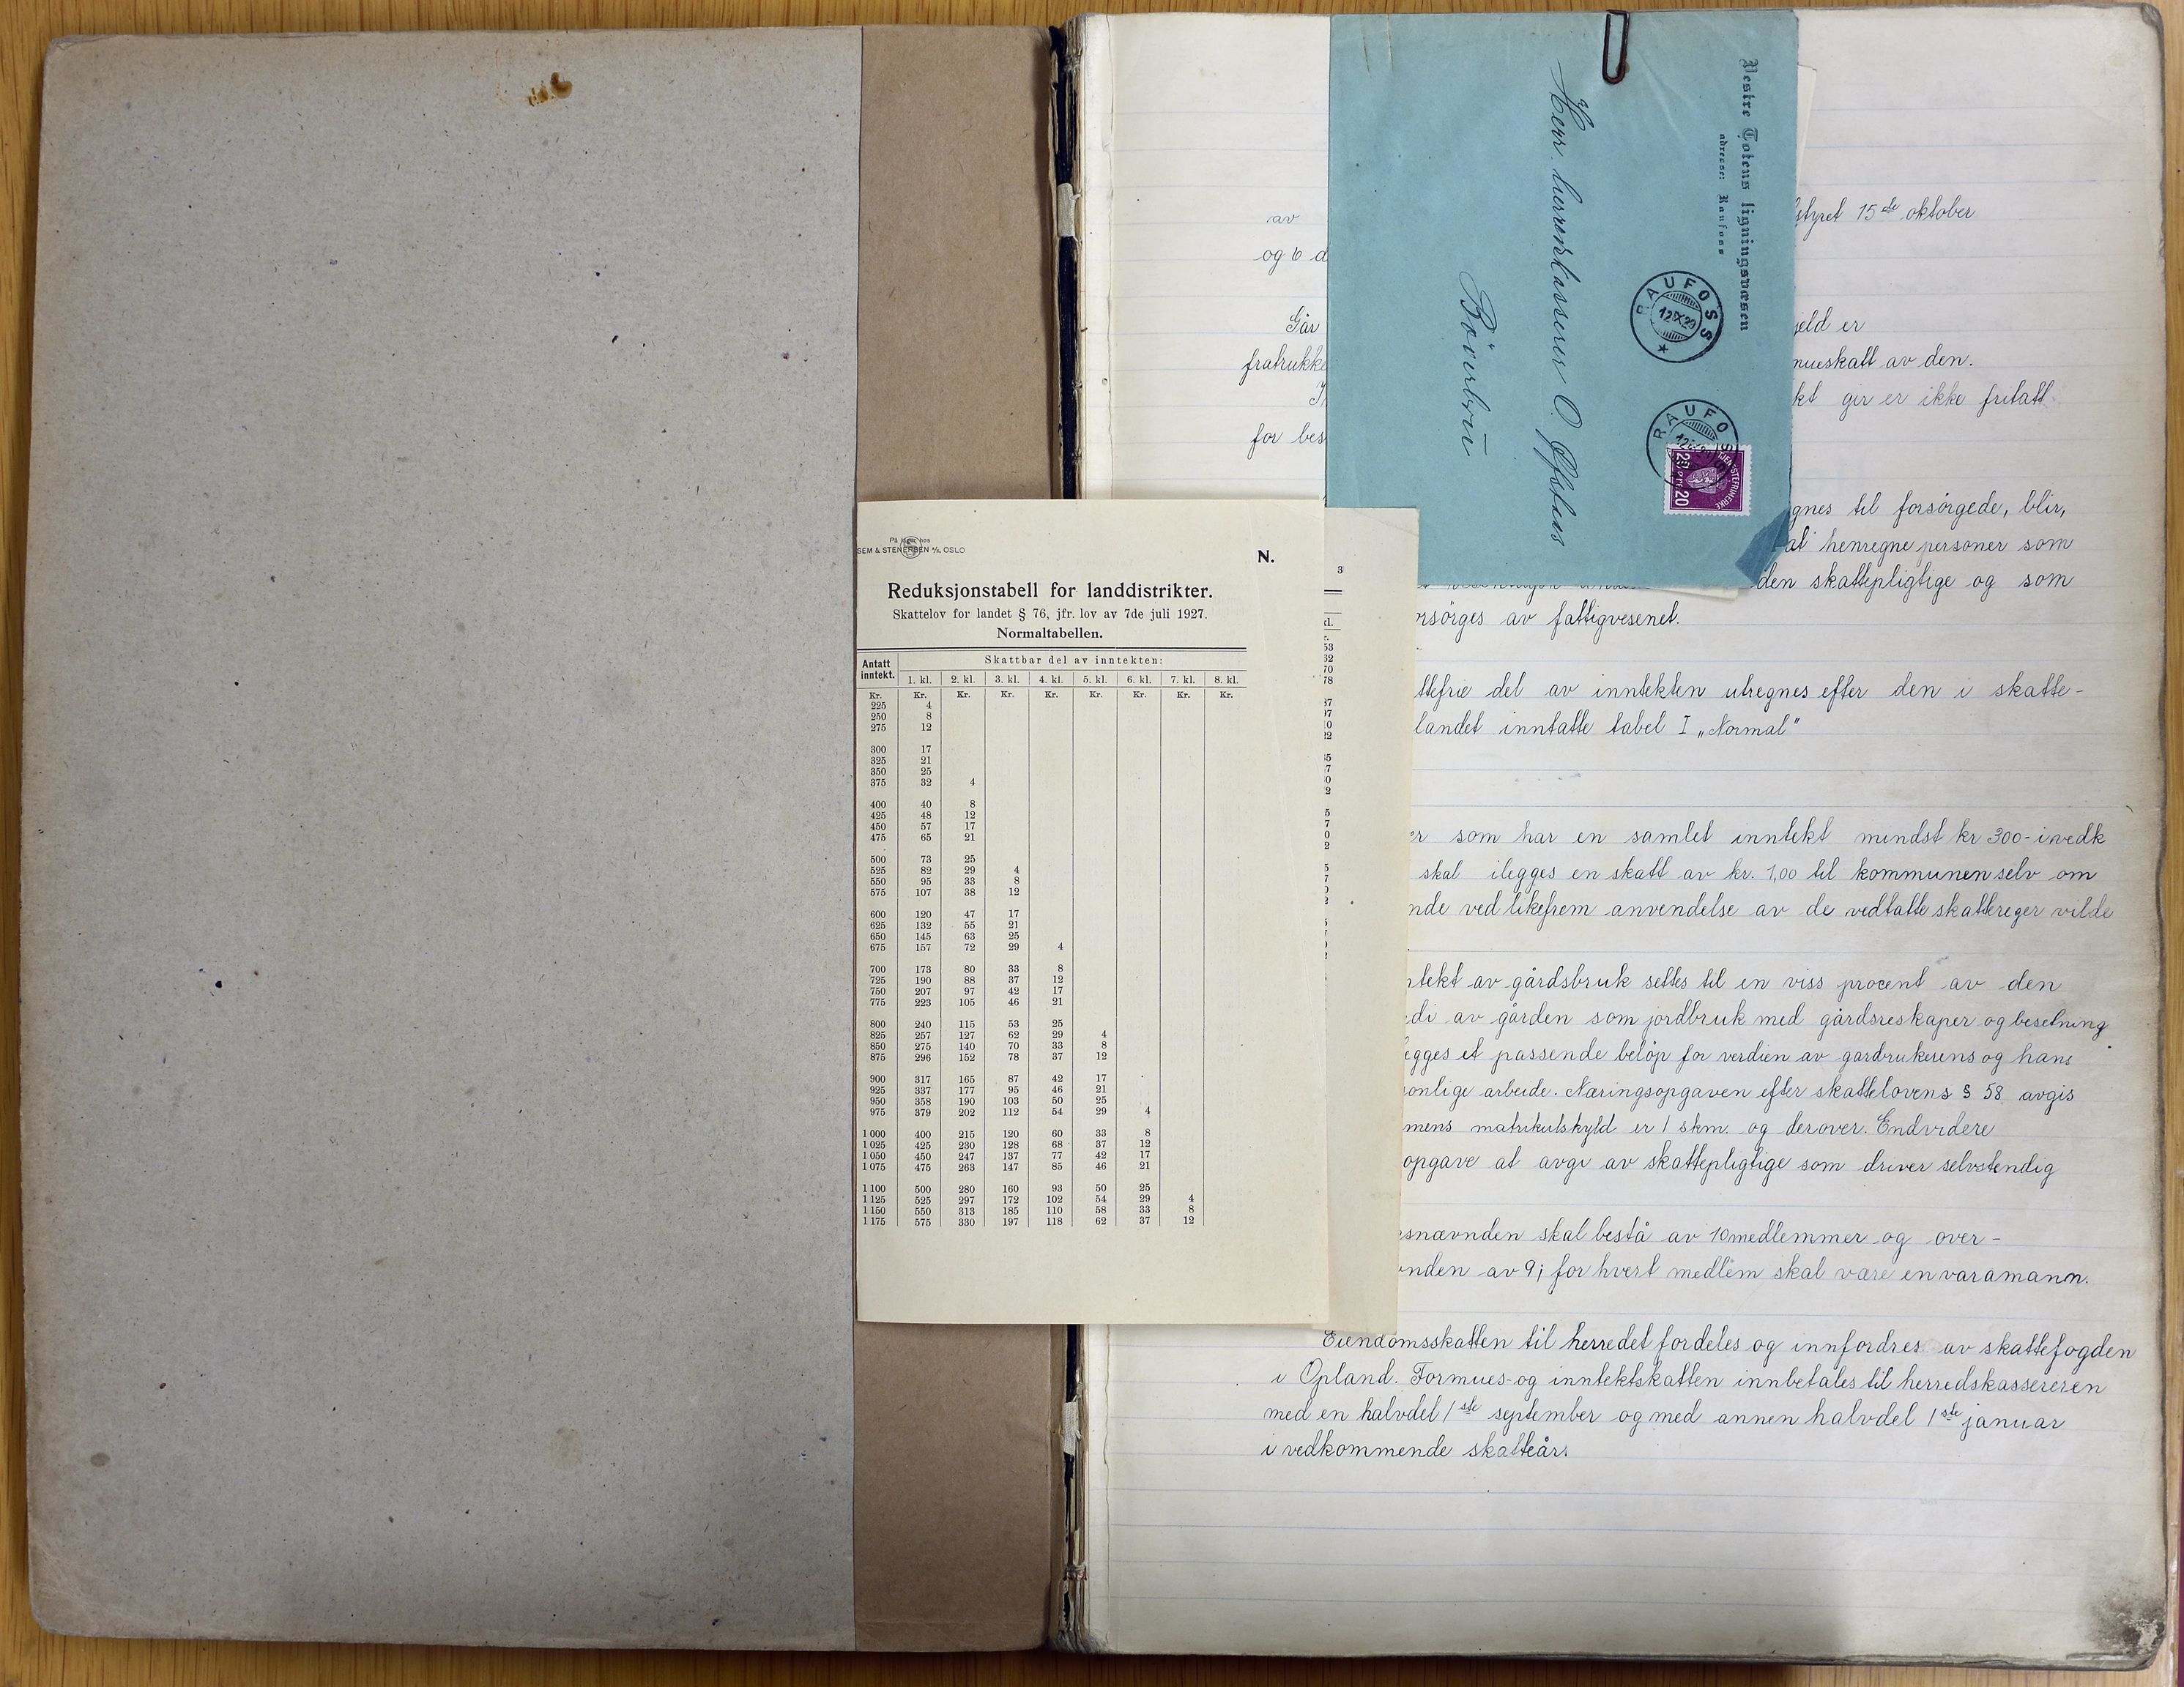 På lager hos
SEM & STENERSEN A/S, OSLO
N.
Reduksjonstabell for landdistrikter.
Skattelov for landet § 76, jfr. lov av 7de juli 1927.
Normaltabellen.
Antatt inntekt. Skattbar del av inntekten:
1. kl. 2. kl. 3. kl. 4. kl. 5. kl. 6. kl. 7. kl. 8. kl.
Kr. Kr. Kr. Kr. Kr. Kr. Kr. Kr. Kr.
225 4
250 8
275 12
300 17
325 21
350 25
375 32 4
400 40 8
425 48 12
450 57 17
475 65 21
500 73 25
525 82 29 4
550 95 33 8
575 107 38 12
600 120 47 17
625 132 55 21
650 145 63 25
675 157 72 29 4
700 173 80 33 8
725 190 88 37 12
750 207 97 42 17
775 223 105 46 21
800 240 115 53 25
825 257 127 62 29 4
850 275 140 70 33 8
875 296 152 78 37 12
900 317 165 87 42 17
925 337 177 95 46 21
950 358 190 103 50 25
975 379 202 112 54 29 4
1 000 400 215 120 60 33 8
1 025 425 230 128 68 37 12
1 050 450 247 137 77 42 17
1 075 475 263 147 85 46 21
1 100 500 280 160 93 50 25
1 125 525 297 172 102 54 29 4
1 150 550 313 185 110 58 33 8
1 175 575 330 197 118 62 37 12
3
kl.
53
62
70
78
Vestre Totens ligningsvæsen
adresse: Raufoss
RAUFOSS
12 IX 29
RAUFOSS
TJENESTEFRIMERKE
20 20
Herr herredskasserer O. Ofstus
Böverbru
av
styret 15de oktober
og 6 d
Går jeld er
fratrukke mueskatt av den.
kt gir er ikke fritatt
for bes
gnes til forsörgede, blir,
at henregne personer som
den skattepligtige og som
rsörges av fattigvesenet.
ttefrie del av inntekten utregnes efter den i skatte-
landet inntatte tabel I „Normal"
er som har en samlet inntekt mindst kr 300- i vedk
skal ilegges en skatt av kr. 1,00 til kommunen selv om
nde ved likefrem anvendelse av de vedtatte skattereger vilde
ntekt av gårdsbruk settes til en viss procent av den
di av gården som jordbruk med gårdsreskaper og besetning
egges et passende belöp for verdien av gardrukerens og hans
onlige arbeide. Næringsopgaven efter skattelovens § 58 avgis
mens matrikulskyld er 1 skm. og derover. Endvidere
opgave at avgi av skattepligtige som driver selvstendig
snævnden skal bestå av 10 medlemmer og over-
nden av 9; for hvert medlem skal være en varamann.
Eiendomsskatten til herredet fordeles og innfordres av skattefogden
i Opland. Formues- og inntektskatten innbetales til herredskassereren
med en halvdel 1ste september og med annen halvdel 1ste januar
i vedkommende skatteår.